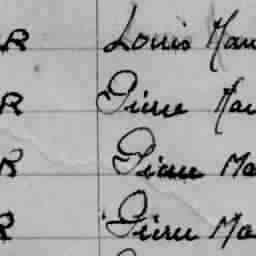 R Louis Mau
R Pierre Mau
R Pierre Ma
R Pierre Ma